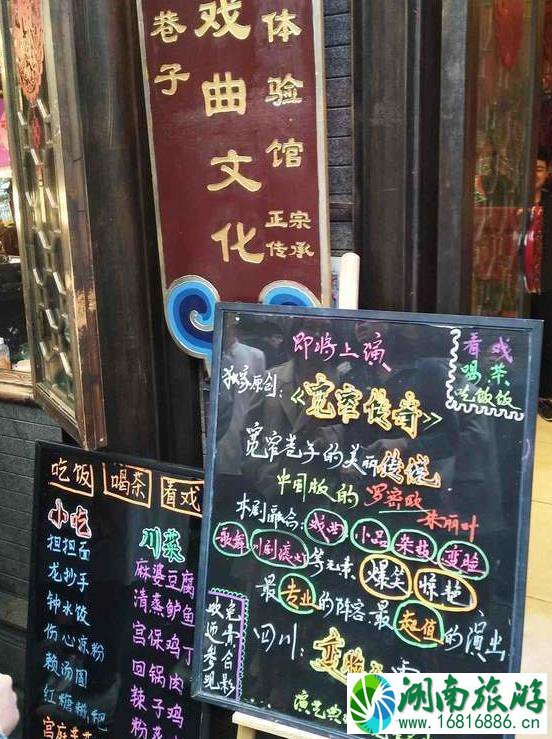 巷子
戏曲文化
体验馆
正宗
传承
即将上演
看戏
喝茶
吃饭饭
独家原创:
《宽窄传奇》
宽窄巷子的美丽传说
中国版的罗密欧
朱丽叶
本剧融合: 戏曲 小品 杂技 变脸
歌舞 川剧滚灯 等元素 爆笑 惊艳
最专业的阵容最超值的演出
四川: 变脸
免费合影
欢迎参观
吃饭 喝茶 看戏
小吃
担担面
龙抄手
钟水饺
伤心凉粉
赖汤圆
红糖糍粑
川菜
麻婆豆腐
清蒸鲈鱼
宫保鸡丁
回锅肉
辣子鸡
湖南旅游
www.16816886.cn